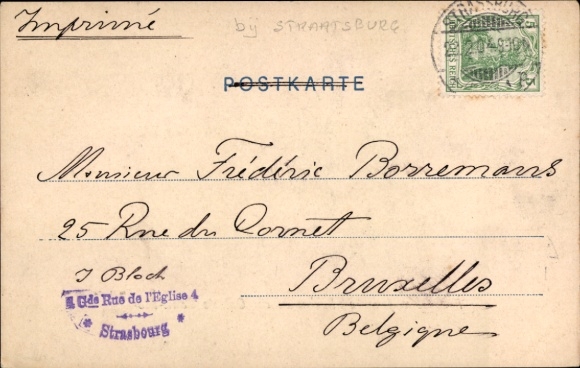 Imprimé
bij STRAATSBURG
POSTKARTE
Monsieur Frédéric Borremans
25 Rue du Cornet
J Bloch
Bruxelles
4 Gde Rue de l'Eglise 4
Strasbourg
Belgique